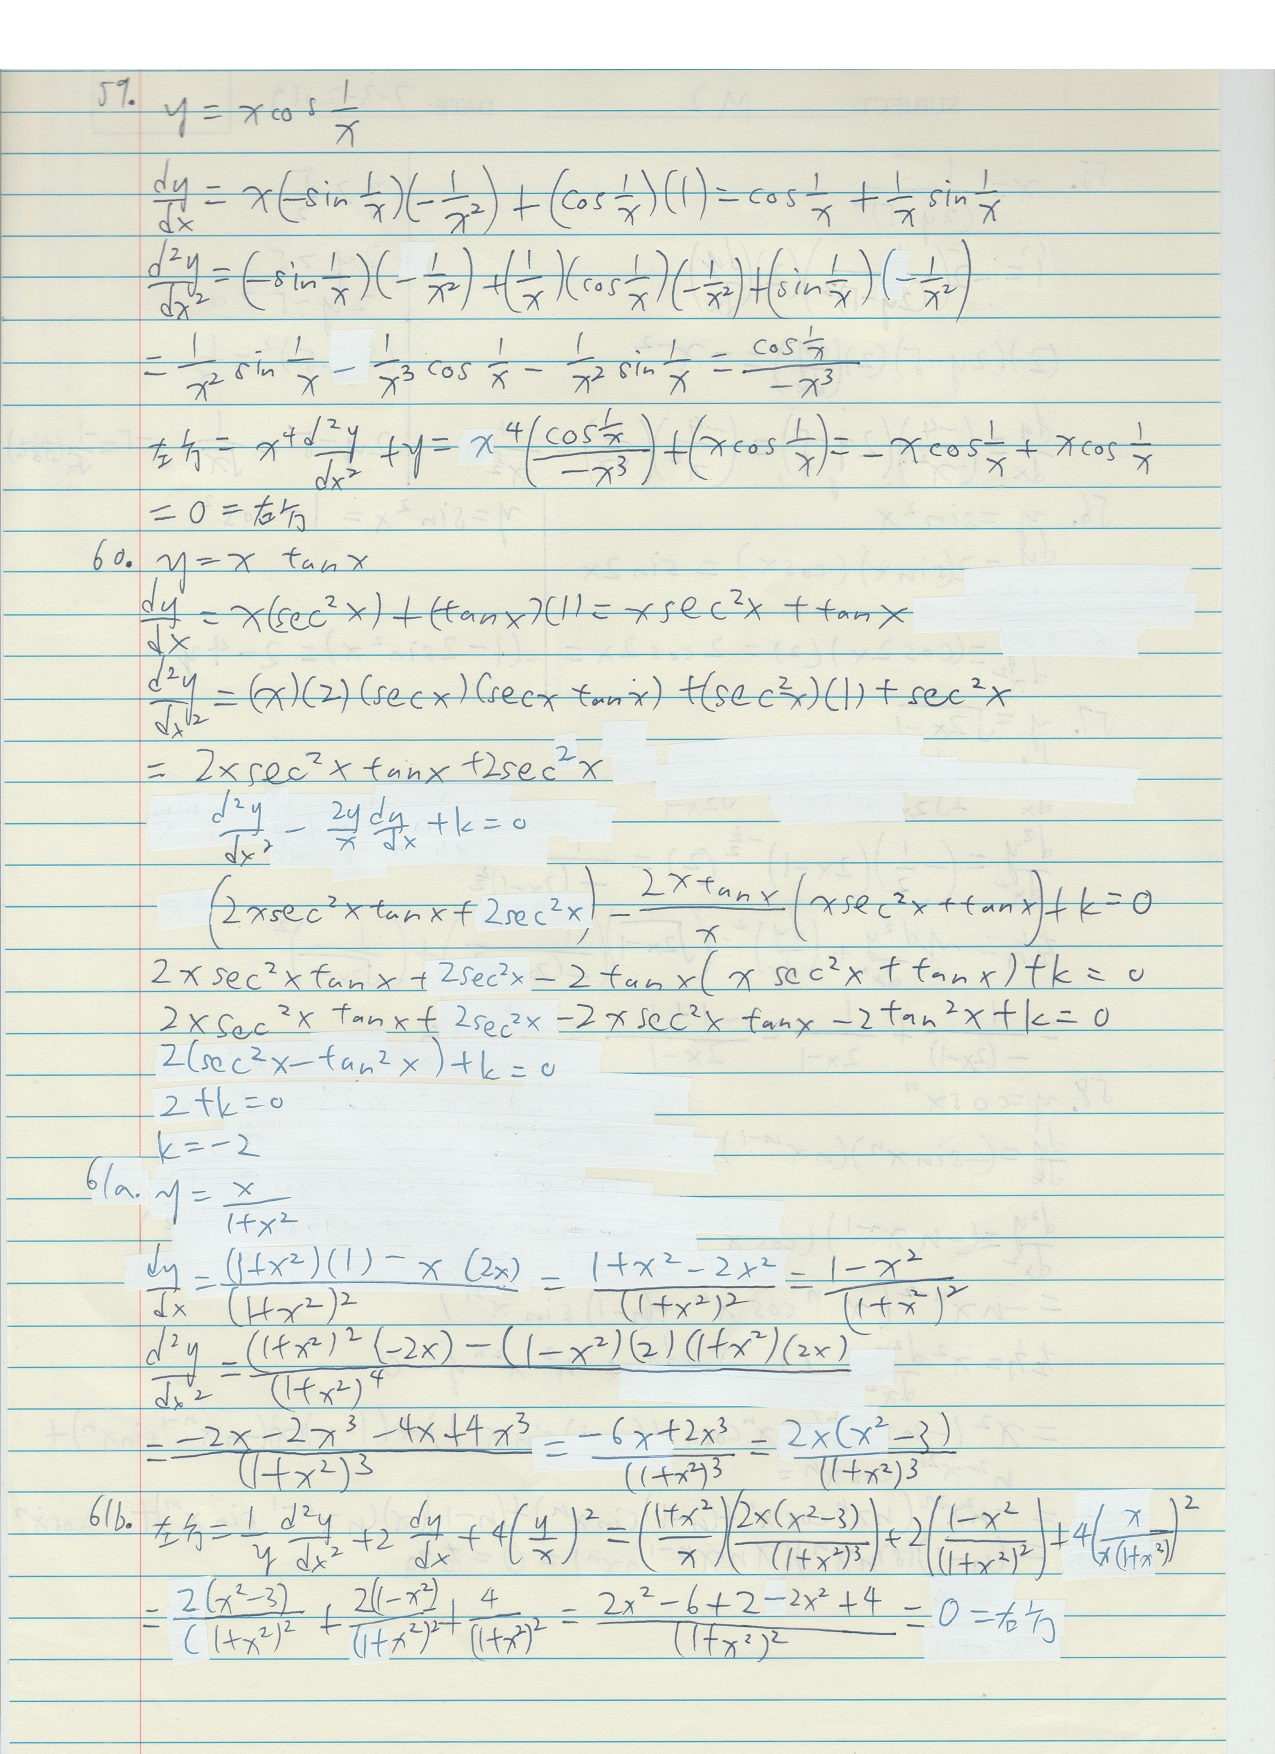 59. y = x cos 1/x
dy/dx = x(-sin 1/x)(-1/x²) + (cos 1/x)(1) = cos 1/x + 1/x sin 1/x
d²y/dx² = (-sin 1/x)(-1/x²) + (1/x)(cos 1/x)(-1/x²) + (sin 1/x)(-1/x²)
= 1/x² sin 1/x - 1/x³ cos 1/x - 1/x² sin 1/x = cos 1/x / -x³
左方 = x⁴ d²y/dx² + y = x⁴(cos 1/x / -x³) + (x cos 1/x) = -x cos 1/x + x cos 1/x
= 0 = 右方
60. y = x tan x
dy/dx = x(sec²x) + (tan x)(1) = x sec²x + tan x
d²y/dx² = (x)(2)(sec x)(sec x tan x) + (sec²x)(1) + sec²x
= 2x sec²x tan x + 2sec²x
d²y/dx² - 2y/x dy/dx + k = 0
(2x sec²x tan x + 2sec²x) - 2x tan x / x (x sec²x + tan x) + k = 0
2x sec²x tan x + 2sec²x - 2 tan x(x sec²x + tan x) + k = 0
2x sec²x tan x + 2sec²x - 2x sec²x tan x - 2 tan²x + k = 0
2(sec²x - tan²x) + k = 0
2 + k = 0
k = -2
61a. y = x/(1+x²)
dy/dx = ((1+x²)(1) - x(2x))/(1+x²)² = (1+x²-2x²)/(1+x²)² = (1-x²)/(1+x²)²
d²y/dx² = ((1+x²)²(-2x) - (1-x²)(2)(1+x²)(2x))/(1+x²)⁴
= (-2x-2x³-4x+4x³)/(1+x²)³ = (-6x+2x³)/(1+x²)³ = 2x(x²-3)/(1+x²)³
61b. 左方 = 1/y d²y/dx² + 2 dy/dx + 4(y/x)² = ((1+x²)/x)(2x(x²-3)/(1+x²)³) + 2((1-x²)/(1+x²)²) + 4(x/(x(1+x²)))²
= 2(x²-3)/(1+x²)² + 2(1-x²)/(1+x²)² + 4/(1+x²)² = (2x²-6+2-2x²+4)/(1+x²)² = 0 = 右方